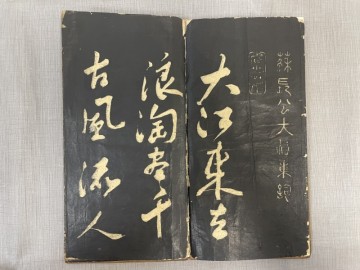 蘇長公大江東
大江東去
浪淘盡千
古風流人